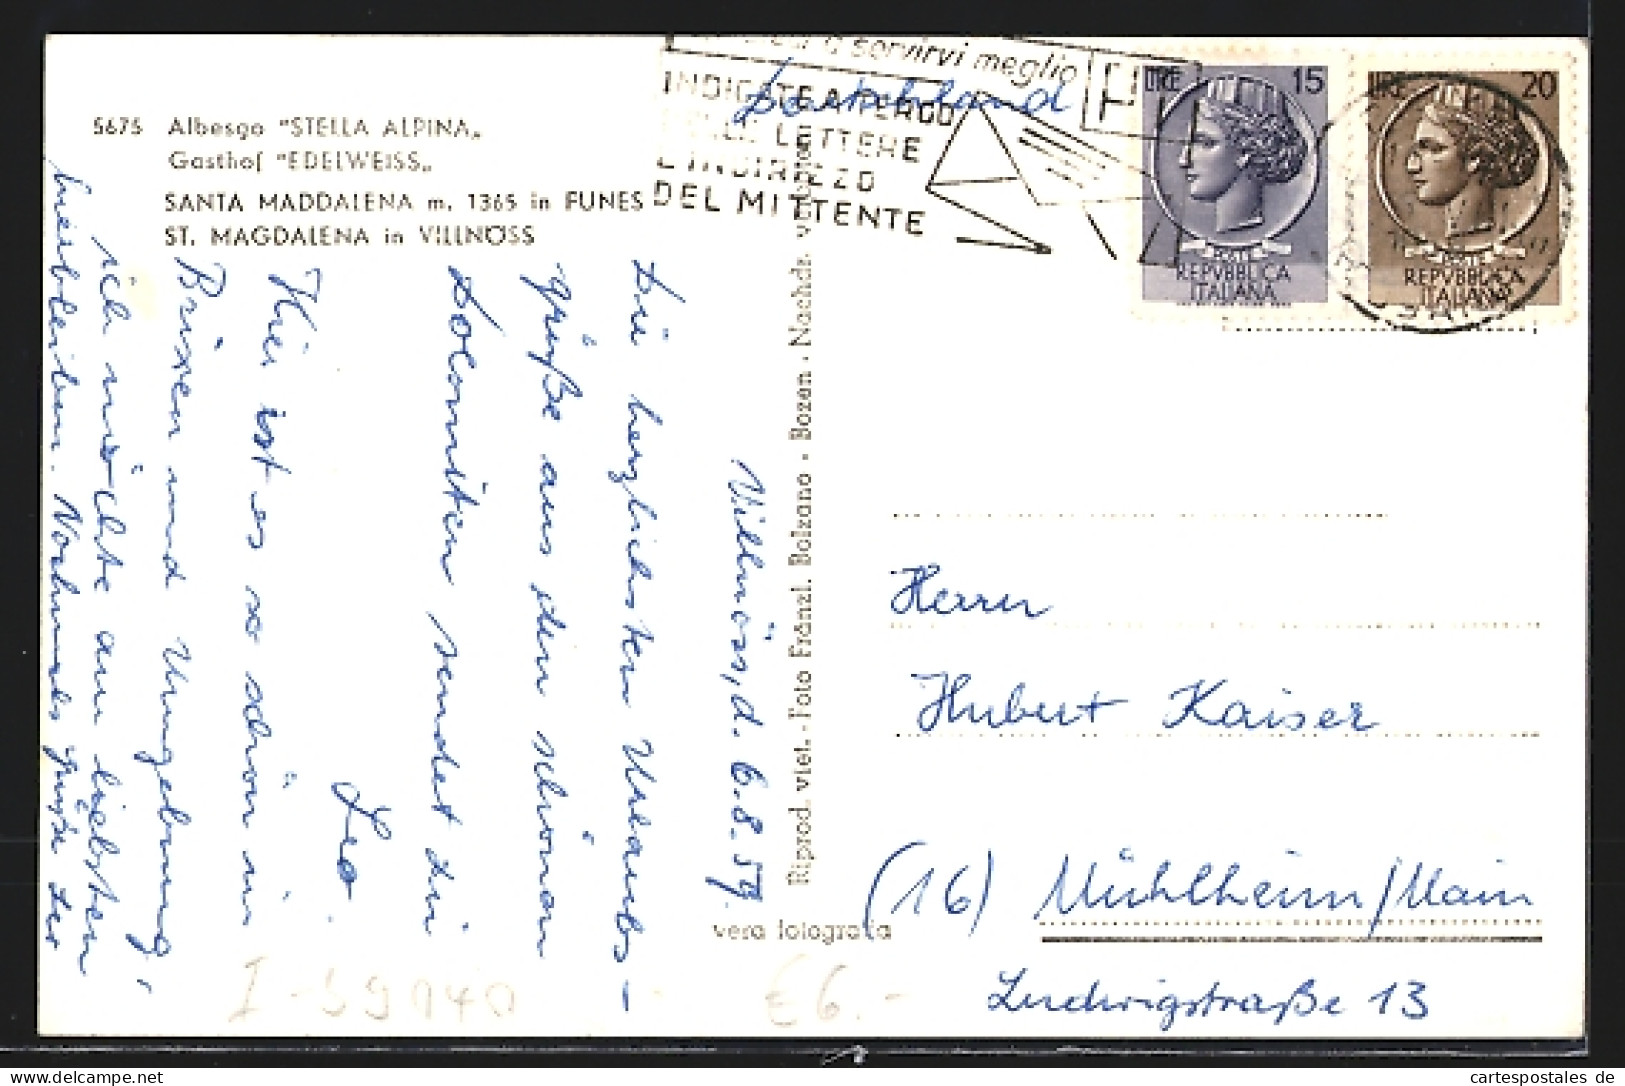 5675 Albesgo "STELLA ALPINA„
Gasthof "EDELWEISS„
SANTA MADDALENA m. 1365 in FUNES
ST. MAGDALENA in VILLNÖSS
Villnöss, d. 6.8.59
Die herzlichsten Urlaubs-
grüße aus den schönen
Dolomiten sendet Dir
Leo.
Hier ist es so schön in
Brixen und Umgebung,
ich möchte am liebsten
hierbleiben. Nochmals grüßt Dich
Riprod. viet. - Foto Fränzl. Bolzano - Bozen - Nachdr.
vera fotografia
a servirvi meglio
INDICATE A TERGO
DELLE LETTERE
L'INDIRIZZO
DEL MITTENTE
Deutschland
LIRE 15
POSTE
REPVBBLICA
ITALIANA
LIRE 20
POSTE
REPVBBLICA
ITALIANA
Herrn
Hubert Kaiser
(16) Mühlheim/Main
Ludwigstraße 13
I-59140
€6.-
www.delcampe.net
cartespostales de